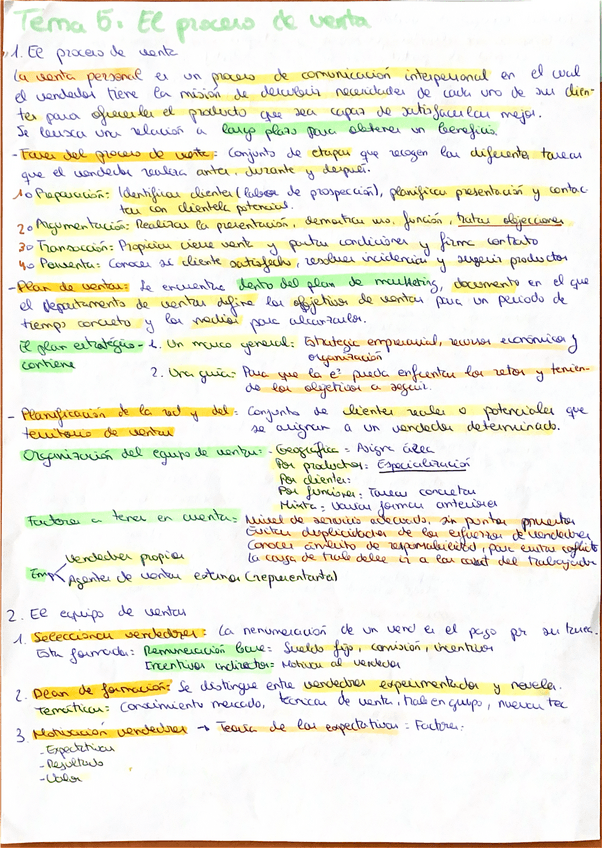 Tema 5: El proceso de venta
1. El proceso de venta
La venta personal es un proceso de comunicación interpersonal en el cual
el vendedor tiene la misión de descubrir necesidades de cada uno de sus clien-
tes para ofrecerles el producto que sea capaz de satisfacerlas mejor.
Se busca una relación a largo plazo para obtener un beneficio.
- Fases del proceso de venta: Conjunto de etapas que recogen las diferentes tareas
que el vendedor realiza antes, durante y después.
1º Preparación: Identificar clientes (labores de prospección), planificar presentación y contac-
tar con clientela potencial.
2º Argumentación: Realizar la presentación, demostrar uso, función, tratar objecciones
3º Transacción: Propiciar cierre venta y pactar condiciones y firma contrato
4º Posventa: Conocer si cliente satisfecho, resolver incidencias y sugerir productos
- Plan de ventas: Se encuentra dentro del plan de marketing, documento en el que
el departamento de ventas define los objetivos de ventas para un periodo de
tiempo concreto y los medios para alcanzarlos.
El plan estratégico - 1. Un marco general: Estrategia empresarial, recursos económicos y
contiene organización
2. Una guía: Para que la eª pueda enfrentar los retos y tenien-
do los objetivos a seguir.
- Planificación de la red y del: Conjunto de clientes reales o potenciales que
territorio de ventas se asignan a un vendedor determinado.
Organización del equipo de ventas: - Geográfica = Asigna área
Por productos: Especialización
Por clientes:
Por funciones: Tareas concretas
Mixta: Varias formas anteriores
Factores a tener en cuenta: Nivel de servicio adecuado, sin puntos muertos
Evitar duplicidades de los esfuerzos de vendedores
Conocer ámbito de responsabilidad, para evitar conflicto
la carga de trab debe ir a las del trabajador
Vendedores propios
Agentes de ventas externos (representantes)
2. El equipo de ventas
1. Seleccionar vendedores: La remuneración de un vend es el pago por su
Esta formada: Remuneración base: Sueldo fijo, comisión, incentivos
Incentivos indirectos: Motivar al vendedor
2. Plan de formación: Se distingue entre vendedores experimentados y noveles.
Temáticas: Conocimiento mercado, técnicas de venta, trab en grupo, nuevas tec
3. Motivación vendedores → Teoría de las expectativas = Factores:
- Expectativas
- Resultado
- Valor